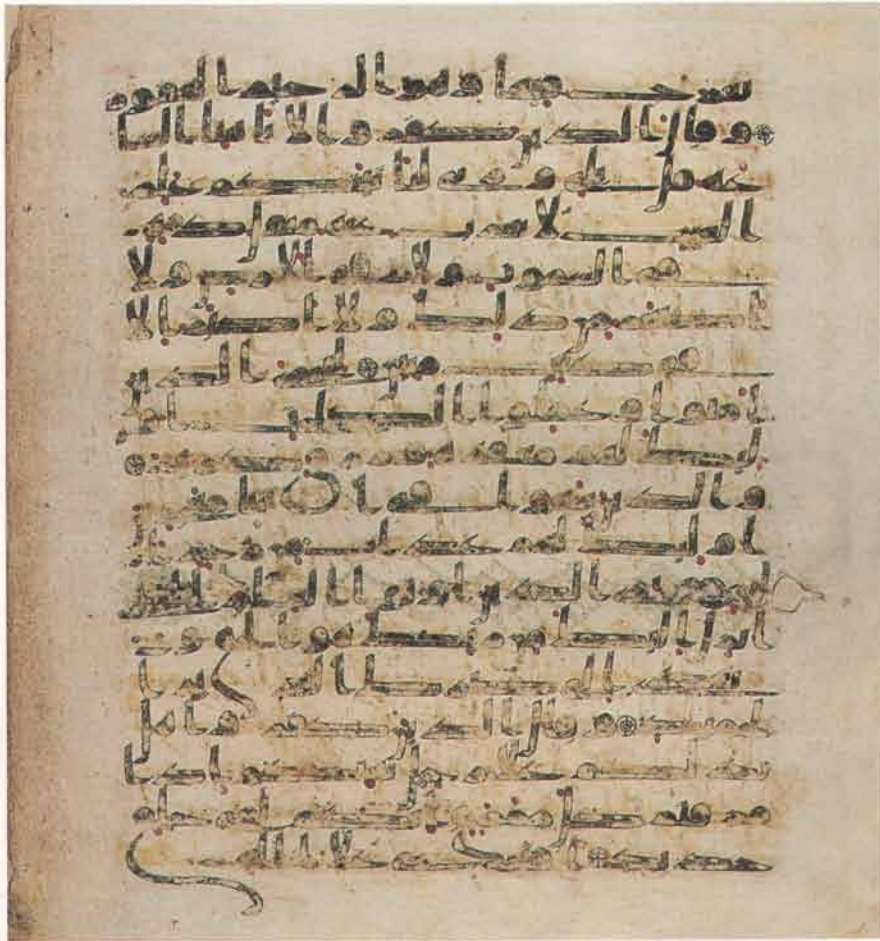 يعرج فيها وهو الرحيم الغفور
وقال الذين كفروا لا تاتينا السا
عة قل بلى وربي لتاتينكم علم
الغيب لا يعزب عنه مثقال ذر
ة في السموت ولا في الارض ولا
اصغر من ذلك ولا اكبر الا
في كتب مبين ليجزي الذين
امنوا وعملوا الصلحت ا
ولئك لهم مغفرة ورزق كريم
والذين سعو في ايتنا معجزين
اولئك لهم عذاب من رجز
اليم ويرى الذين اوتوا العلم الذي
انزل اليك من ربك هو الحق و
يهدي الى صرط العزيز ا
لحميد وقال الذين كفروا هل
ندلكم على رجل ينبئكم اذا
مزقتم كل ممزق انكم لفي خلق
جديد افترى على الله